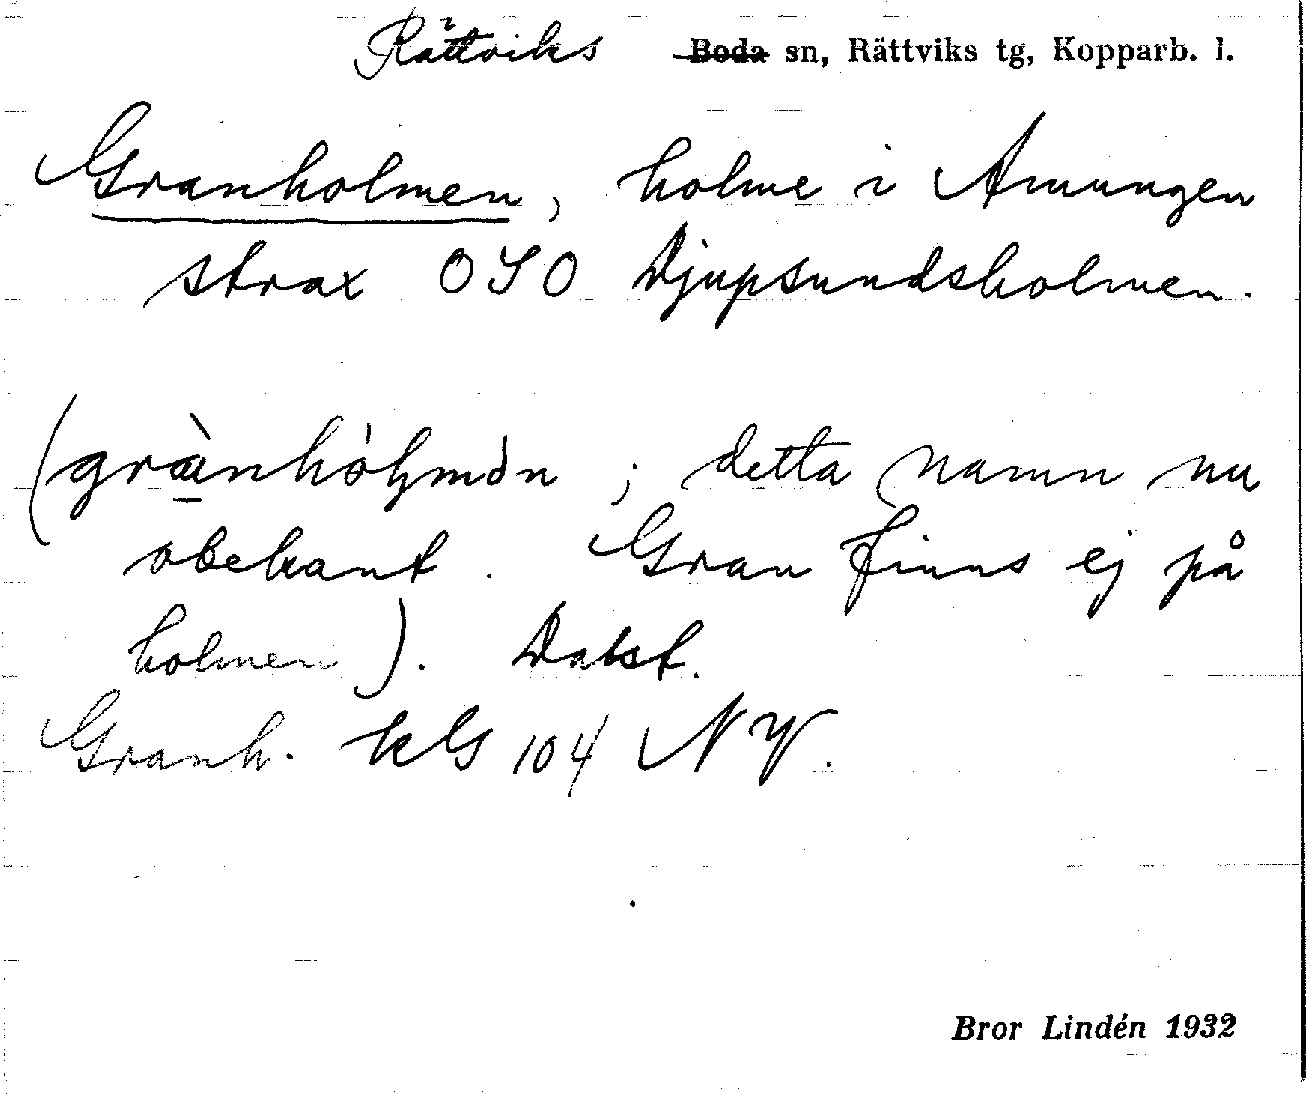 Rättviks Boda sn, Rättviks tg, Kopparb. l.
Granholmen, holme i Amungen
strax OSO Djupsundsholmen.
(grànhòɫmən ; detta namn nu
obekant. Gran finns ej på
holmen). Dalst.
Granh. kG 104 NV.
Bror Lindén 1932